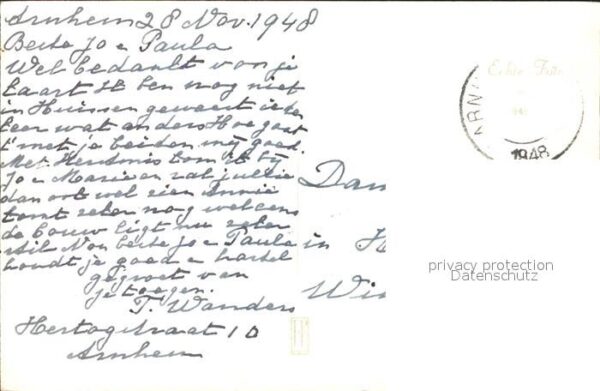 Arnhem 28 Nov. 1948
Beste Jo e Paula
Wel bedankt voor je
kaart Ik ben nog niet
in Huissen geweest ieder
keer wat anders Hoe gaat
t met je beiden mij goed.
Met Kerstmis kom ik bij
Jo e Marie en zal jullie
dan ook wel zien Annie
komt zeker nog wel eens
de bouw ligt nu zeker
stil Nou beste Jo e Paula
houdt je goed e hartel
gegroet van
je
T. Wanders
Hertogstraat 10
Arnhem
Dam
in H
Win
Echte Foto
ARN
1948
privacy protection
Datenschutz